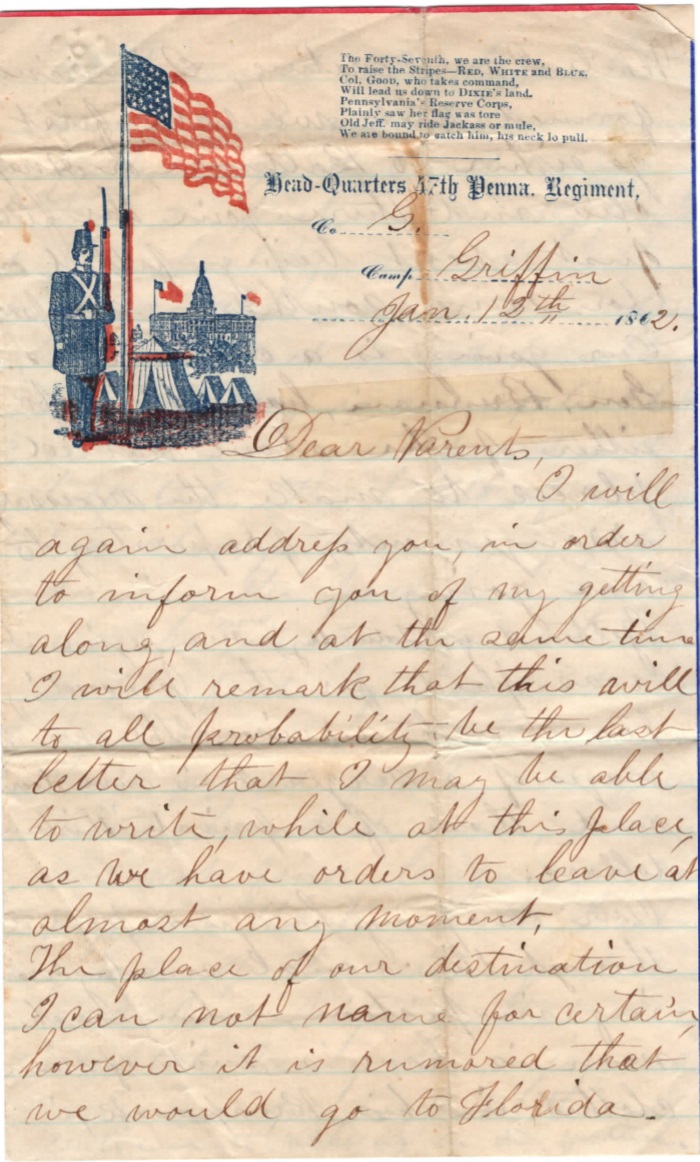 The Forty-Seventh, we are the crew,
To raise the Stripes—RED, WHITE and BLUE.
Col. GOOD, who takes command,
Will lead us down to DIXIE's land.
Pennsylvania's Reserve Corps,
Plainly saw her flag was tore
Old Jeff. may ride Jackass or mule,
We are bound to catch him, his neck to pull.
Head-Quarters 47th Penna. Regiment,
Co. G.
Camp Griffin
Jan. 13th 1862.
Dear Parents,
I will
again addreſs you, in order
to inform you of my getting
along, and at the same time
I will remark that this will
to all probability be the last
letter that I may be able
to write, while at this place,
as we have orders to leave at
almost any moment,
The place of our destination
I can not name for certain,
however it is rumored that
we would go to Florida.